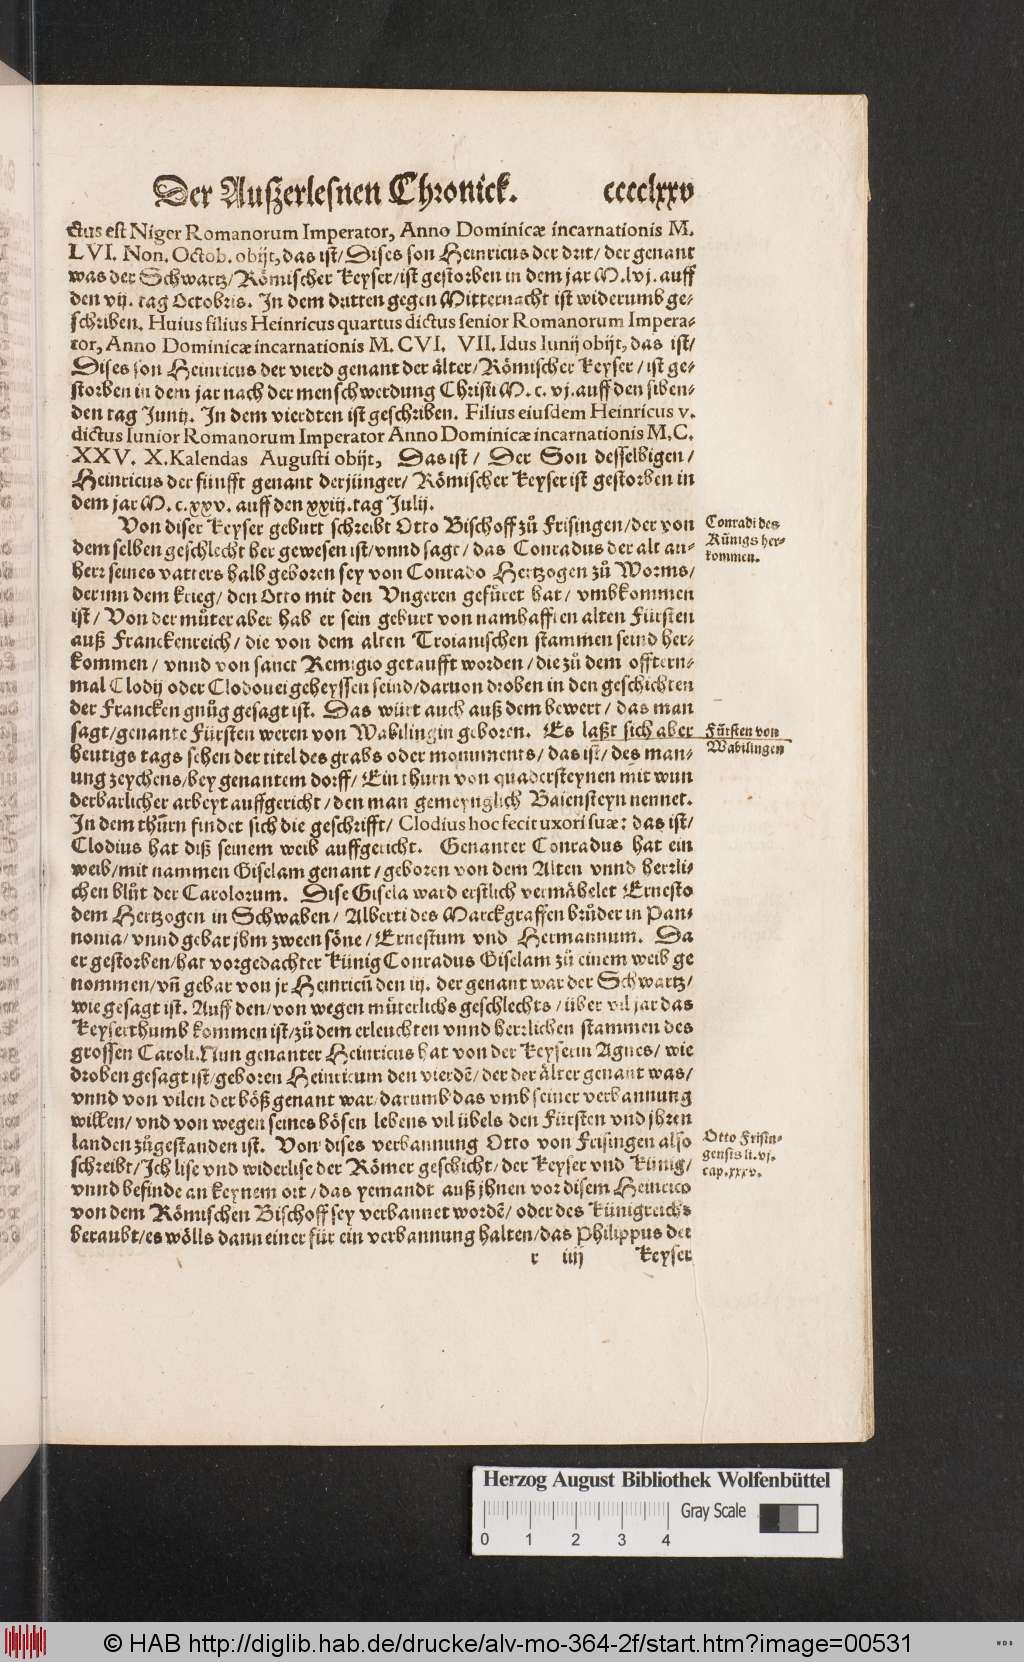 Der Außerlesnen Chronick. cccclxxv
ctus est Niger Romanorum Imperator, Anno Dominicæ incarnationis M.
LVI. Non. Octob. obijt, das ist/ Dises son Heinricus der drit/ der genant
was der Schwartz/ Römischer Keyser/ ist gestorben in dem jar M.lvj. auff
den vij. tag Octobris. In dem dritten gegen Mitternacht ist widerumb ge-
schriben. Huius filius Heinricus quartus dictus senior Romanorum Impera-
tor, Anno Dominicæ incarnationis M. CVI. VII. Idus Iunij obijt, das ist/
Dises son Heinricus der vierd genant der älter/ Römischer Keyser/ ist ge-
storben in dem jar nach der menschwerdung Christi M. c. vj. auff den siben-
den tag Junij. In dem vierdten ist geschriben. Filius eiusdem Heinricus v.
dictus Iunior Romanorum Imperator Anno Dominicæ incarnationis M.C.
XXV. X. Kalendas Augusti obijt, Das ist/ Der Son desselbigen/
Heinricus der fünfft genant der jünger/ Römischer Keyser ist gestorben in
dem jar M. c. xxv. auff den xxiij. tag Julij.
Von diser Keyser geburt schreibt Otto Bischoff zů Frisingen/ der von
dem selben geschlecht her gewesen ist/ vnnd sagt/ das Conradus der alt an-
herr seines vatters halb geboren sey von Conrado Hertzogen zů Worms/
der inn dem krieg/ den Otto mit den Vngeren gefüret hat/ vmbkommen
ist/ Von der můter aber hab er sein geburt von namhafften alten Fürsten
auß Franckenreich/ die von dem alten Troianischen stammen seind her-
kommen/ vnnd von sanct Remigio getaufft worden/ die zů dem offtern-
mal Clodij oder Clodouei geheyssen seind/ daruon droben in den geschichten
der Francken gnůg gesagt ist. Das würt auch auß dem bewert/ das man
sagt/ genante Fürsten weren von Wabilingin geboren. Es laßt sich aber
heutigs tags sehen der titel des grabs oder monuments/ das ist/ des man-
ung zeychens/ bey genantem dorff/ Ein thurn von quadersteynen mit wun
derbarlicher arbeyt auffgericht/ den man gemeynglich Baiensteyn nennet.
In dem thůrn findet sich die geschrifft/ Clodius hoc fecit uxori suæ: das ist/
Clodius hat diß seinem weib auffgericht. Genanter Conradus hat ein
weib/ mit nammen Giselam genant/ geboren von dem Alten vnnd herrli-
chen blůt der Carolorum. Dise Gisela ward erstlich vermähelet Ernesto
dem Hertzogen in Schwaben/ Alberti des Marckgraffen brůder in Pan-
nonia/ vnnd gebar jhm zween söne/ Ernestum vnd Hermannum. Da
er gestorben/ hat vorgedachter Künig Conradus Giselam zů einem weib ge
nommen/ vñ gebar von jr Heinricũ den iij. der genant war der Schwartz/
wie gesagt ist. Auff den/ von wegen můterlichs geschlechts/ über vil jar das
Keyserthumb kommen ist/ zů dem erleuchten vnnd herrlichen stammen des
grossen Caroli. Nun genanter Heinricus hat von der Keyserin Agnes/ wie
droben gesagt ist/ geboren Heinricum den vierdẽ/ der der älter genant was/
vnnd von vilen der böß genant war/ darumb das vmb seiner verbannung
willen/ vnd von wegen seines bösen lebens vil übels den Fürsten vnd jhren
landen zůgestanden ist. Von dises verbannung Otto von Frisingen also
schreibt/ Ich lise vnd widerlise der Römer geschicht/ der Keyser vnd Künig/
vnnd befinde an keynem ort/ das yemandt auß jhnen vor disem Heinrico
von dem Römischen Bischoff sey verbannet wordẽ/ oder des Künigreichs
beraubt/ es wölls dann einer für ein verbannung halten/ das Philippus der
r iiij Keyser
Conradi des
Künigs her-
kommen.
Fürsten von
Wabilingen
Otto Frisin-
gensis li. vj.
cap. xxxv.
Herzog August Bibliothek Wolfenbüttel
Gray Scale
0 1 2 3 4
© HAB http://diglib.hab.de/drucke/alv-mo-364-2f/start.htm?image=00531